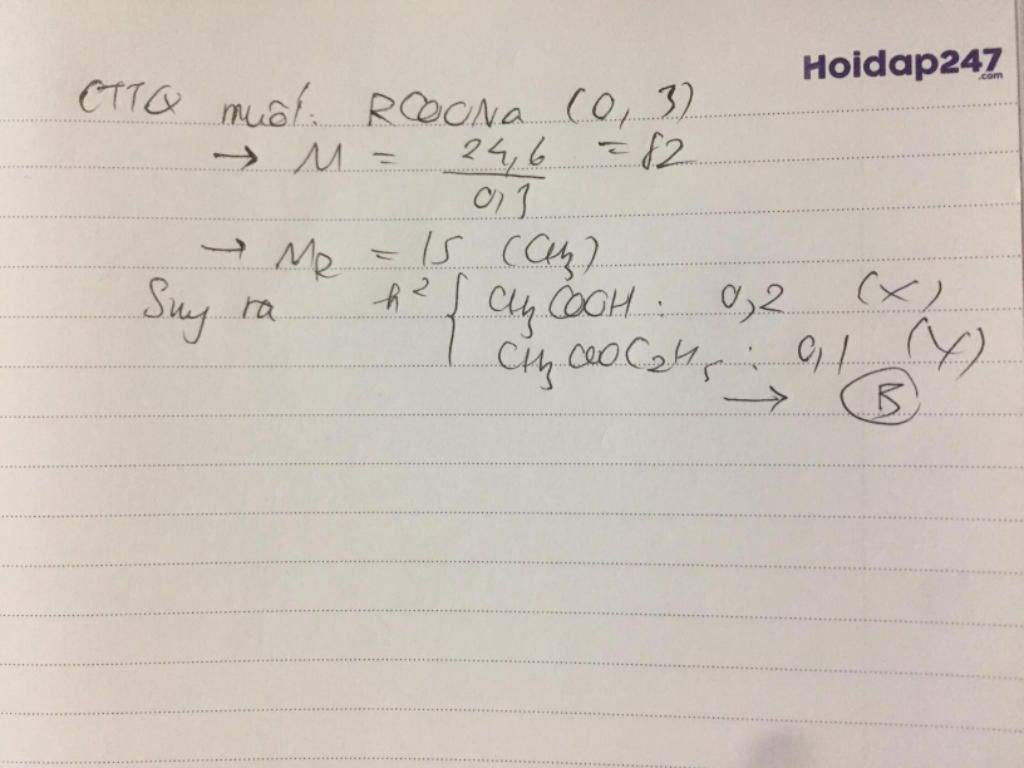 Hoidap247
.com
CTTQ muối: RCOONa (0,3)
→ M = 24,6 / 0,3 = 82
→ MR = 15 (CH3)
Suy ra h² { CH3COOH : 0,2 (X)
CH3COOC2H5 : 0,1 (Y)
→ B